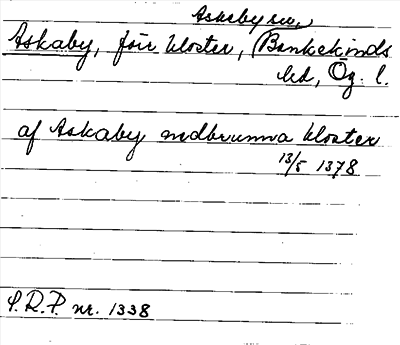 Askeby sn,
Askaby, förr kloster, Bankekinds
hd, Ög. l.
af Askaby nidbrunna kloster
13/5 1378
S.R.P. nr. 1338